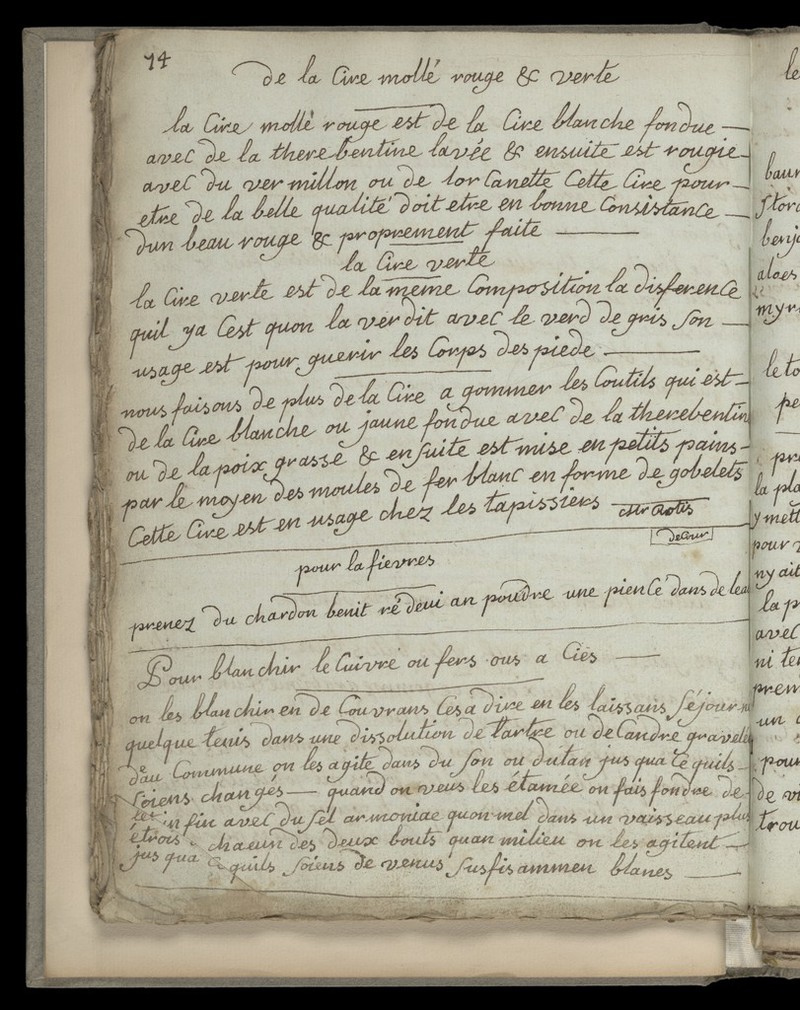 74
De la Cire mollé rouge & verte
la Cire mollé rouge est De la Cire blanche fondue
avec de la therebentine lavée & ensuite est rougie
avec du vermillon ou de lorCanette Cette Cire pour
etre De la belle qualité Doit etre en bonne Consistance
Dun beau rouge & proprement faite
la Cire verte
la Cire verte est de la meme Composition la disference
quil ya Cest quon la verdit avec le verd De gris Son
usage est pour guerir les Corps des piede
nous faisons De plus De la Cire a gommer les Coutils qui est
De la Cire blanche ou jaune fondue avec de la therebentin
ou De la poix grasse & ensuite est mise en petits pains
par le moyen Des moules De fer blanc en forme De gobelets
Cette Cire est en usage chez les tapissiers
pour la fievres
prenez Du chardon benit an poudre une piencé Dans De leau
Pour blanchir le Cuivre ou fers ous a Ciés
on les blanchir en De Couvrans Cesa Dire en les laissans Séjour
quelque tenis Dans une Dissolution De tartre ou De Candre gravele
Dau Commune on les agite Dans Du Son ou Dutan jus qua Ce quils
Soiens changés quand on veus les étamée on fais fondre De
let in fin avec Du Sel armoniac quon mel Dans un vaisseau plus
étrois a chacun Des Deux bouts quan milieu on les agitent
jus qua Ce quils Soiens De venus Susfisammen blanes
le
baum
Stor
benj
aloes
myr
le to
pe
pr
la pla
y mett
pour
ny ait
la p
avec
ni te
pren
un
pour
de vi
trou